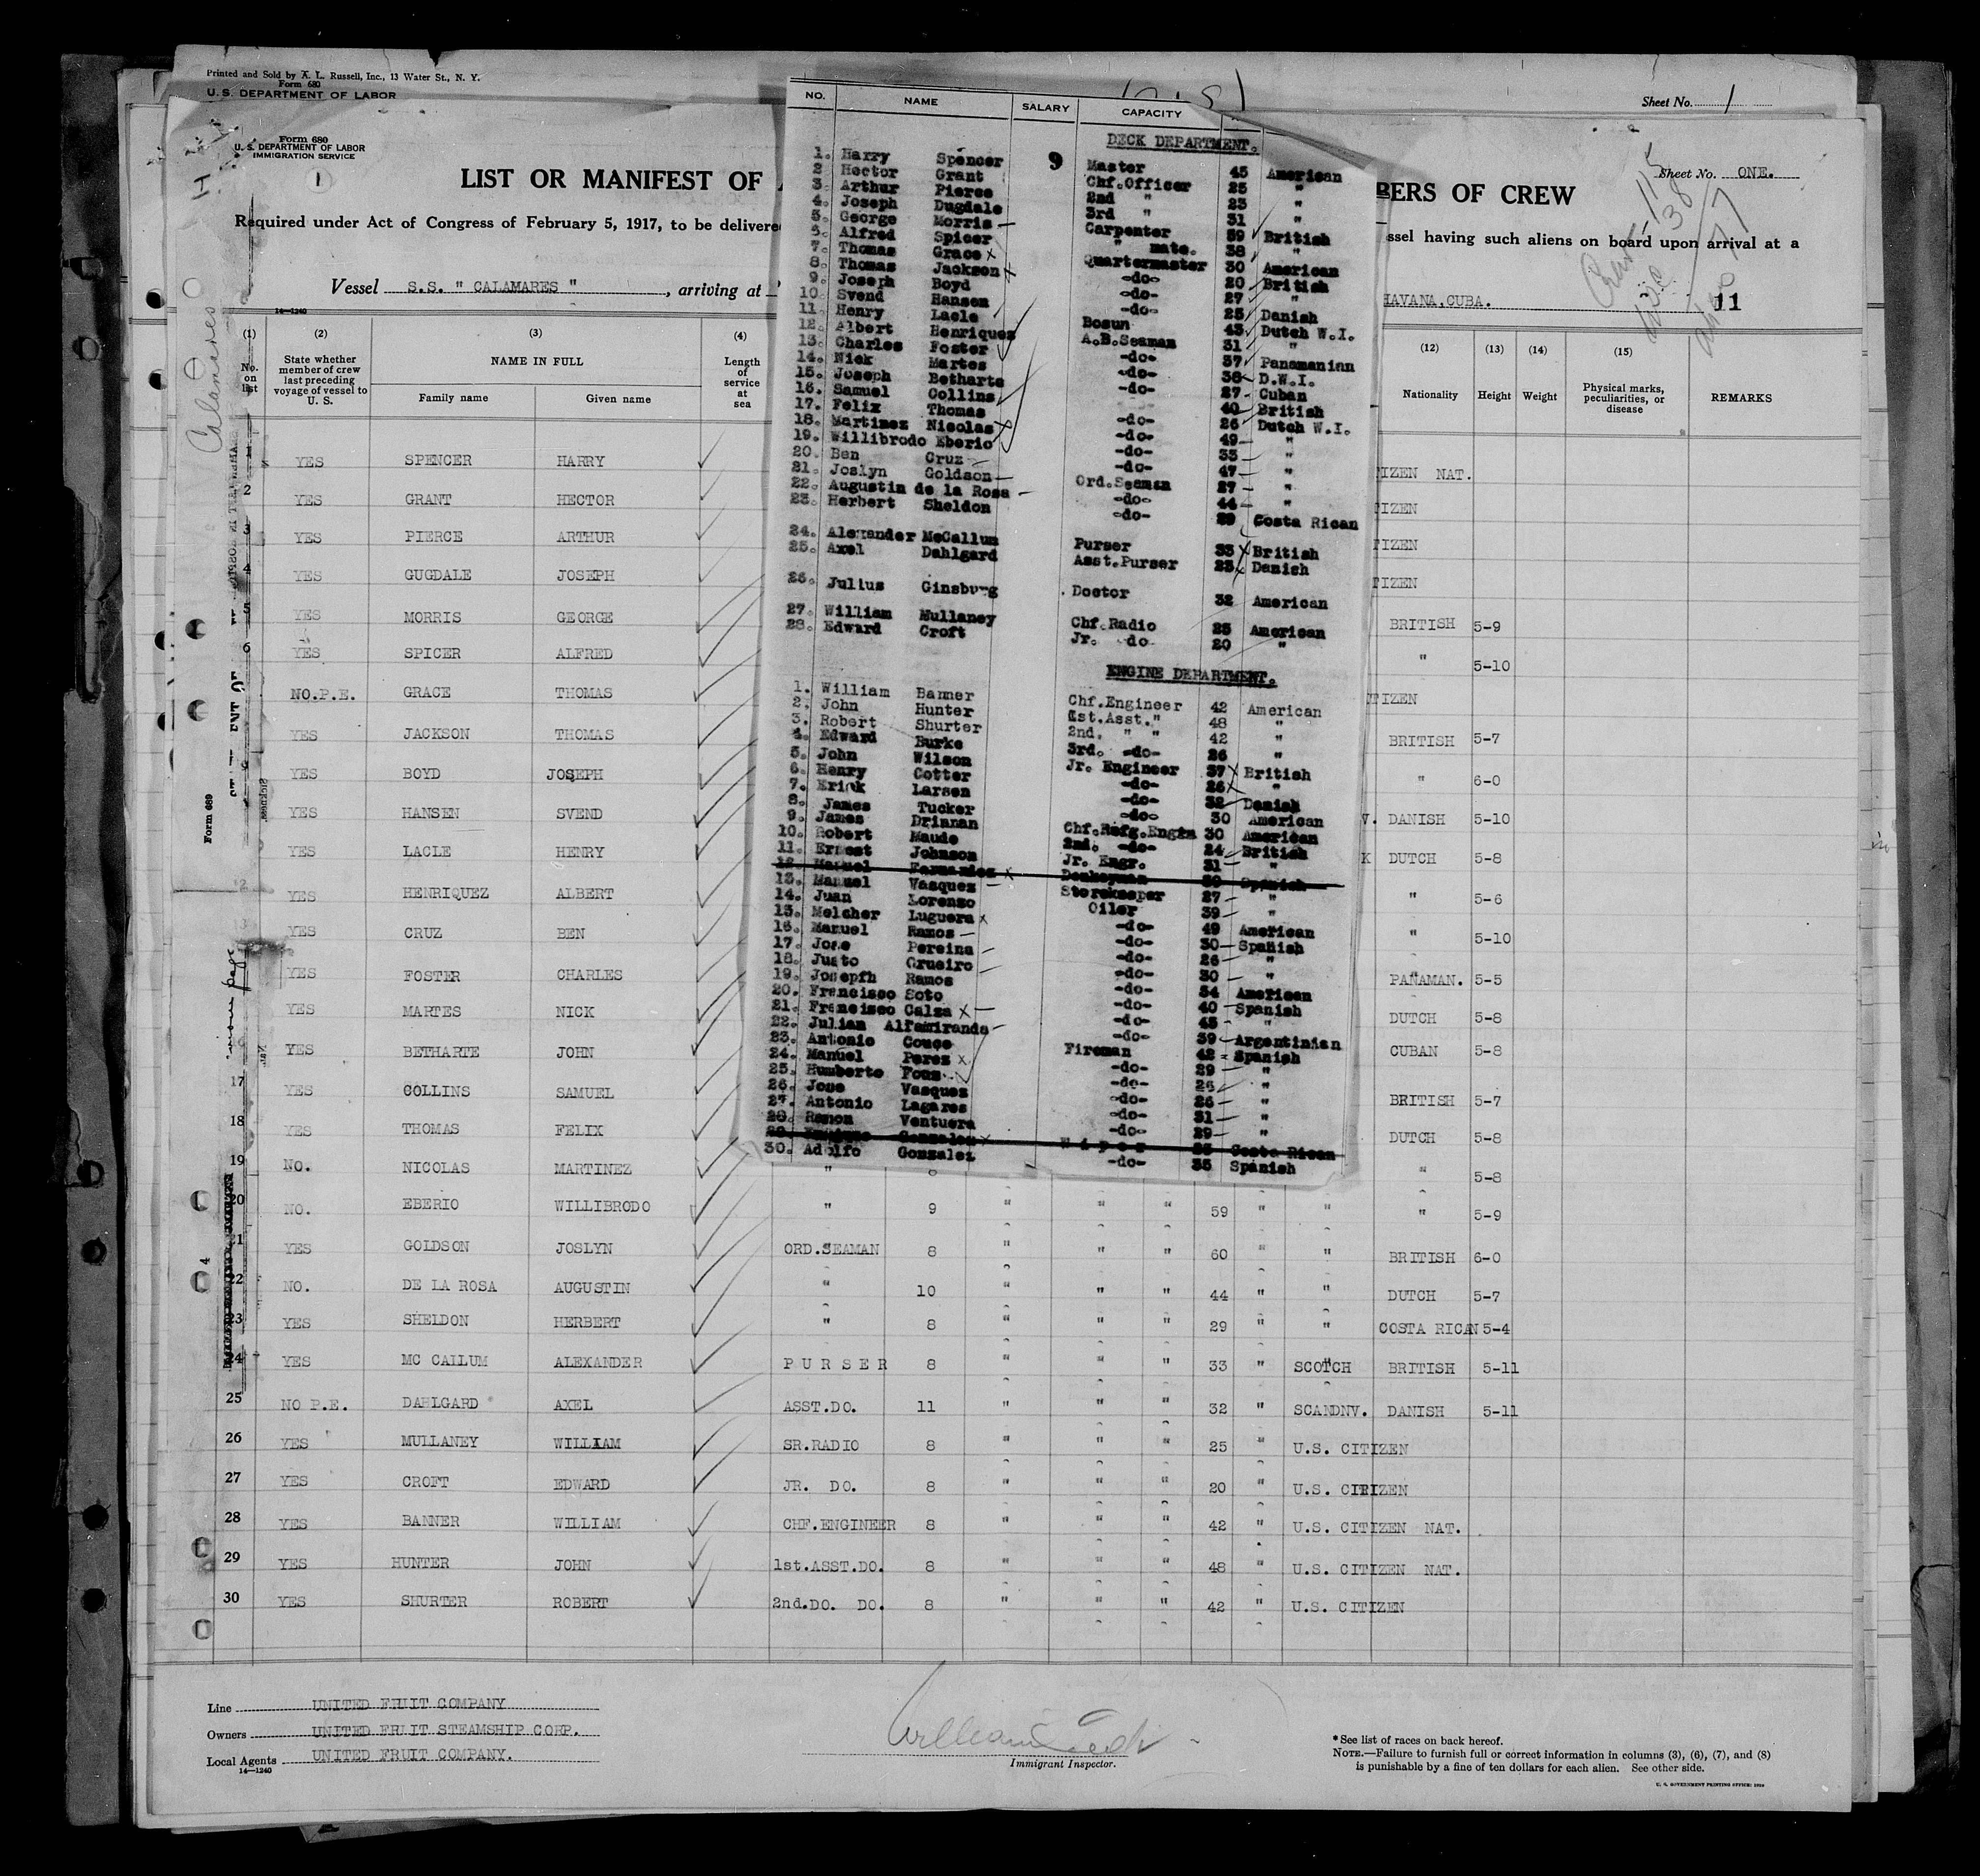 Printed and Sold by A. L. Russell, Inc., 13 Water St., N. Y.
Form 680
U. S. DEPARTMENT OF LABOR
Sheet No. 1
Form 680
U. S. DEPARTMENT OF LABOR
IMMIGRATION SERVICE
1
Sheet No. ONE.
LIST OR MANIFEST OF
BERS OF CREW
Required under Act of Congress of February 5, 1917, to be delivere
ssel having such aliens on board upon arrival at a
Vessel S.S. " CALAMARES " , arriving at
HAVANA, CUBA.
11
Calamares
14—1240
(1) (2) (3) (4) (12) (13) (14) (15)
No. on list
State whether member of crew last preceding voyage of vessel to U. S.
NAME IN FULL
Family name Given name
Length of service at sea
Nationality Height Weight
Physical marks, peculiarities, or disease
REMARKS
Form 689
NO. NAME SALARY CAPACITY
DECK DEPARTMENT.
9
1. Harry Spencer Master 45 American
2 Hector Grant Chf.Officer 25 "
3. Arthur Pierce 2nd " 23 "
4. Joseph Dugdale 3rd " 31 "
5. George Morris Carpenter 39 British
6. Alfred Spicer " mate. 38 "
7. Thomas Grace Quartermaster 30 American
8. Thomas Jackson -do- 20 British
9. Joseph Boyd -do- 27 "
10. Svend Hansen -do- 25 Danish
11. Henry Lacle Bosun 43 Dutch W.I.
12. Albert Henriquez A.B.Seaman 31 "
13. Charles Foster -do- 37 Panamanian
14. Nick Martes -do- 38 D.W.I.
15. Joseph Betharte -do- 27 Cuban
16. Samuel Collins 40 British
17. Felix Thomas -do- 26 Dutch W.I.
18. Martinez Nicolas -do- 49 "
19. Willibrodo Eberio -do- 33 "
20. Ben Cruz -do- 47 "
21. Joslyn Goldson Ord.Seaman 27 "
22. Augustin de la Rosa -do- 44 "
23. Herbert Sheldon -do- 29 Costa Rican
24. Alexander McCallum Purser 33 British
25. Axel Dahlgard Asst.Purser 23 Danish
26. Julius Ginsburg Doctor 32 American
27. William Mullaney Chf.Radio 25 American
28. Edward Croft Jr. do 20 "
ENGINE DEPARTMENT.
1. William Banner Chf.Engineer 42 American
2. John Hunter 1st.Asst." 48 "
3. Robert Shurter 2nd. " " 42 "
4. Edward Burke 3rd. -do- 26 "
5. John Wilson Jr. Engineer 37 British
6. Henry Cotter -do- 26 "
7. Erick Larsen -do- 32 Danish
8. James Tucker -do- 30 American
9. James Drinnan Chf.Refg.Engin 30 American
10. Robert Maude 2nd. -do- 24 British
11. Ernest Johnson Jr. Engr. 31 "
12. Manuel Fernandez Donkeyman 39 Spanish
13. Manuel Vasquez Storekeeper 27 "
14. Juan Lorenzo Oiler 39 "
15. Melcher Luguera -do- 49 American
16. Manuel Ramos -do- 30 Spanish
17. Jose Pereina -do- 26 "
18. Justo Grueiro -do- 30 "
19. Josepfh Ramos -do- 34 American
20. Francisco Soto -do- 40 Spanish
21. Francisco Calza -do- 45 "
22. Julian Alfamirando -do- 39 Argentinian
23. Antonio Couce Fireman 42 Spanish
24. Manuel Perez -do- 29 "
25. Humberto Fous -do- 26 "
26. Jose Vasquez -do- 26 "
27. Antonio Lagares -do- 31 "
28. Ramon Ventuera -do- 29 "
29. Gonzalez Wiper Costa Rican
30. Adolfo Gonzalez -do- 35 Spanish
1 YES SPENCER HARRY TIZEN NAT.
2 YES GRANT HECTOR TIZEN
3 YES PIERCE ARTHUR TIZEN
4 YES GUGDALE JOSEPH TIZEN
5 YES MORRIS GEORGE BRITISH 5-9
6 YES SPICER ALFRED " 5-10
NO.P.E. GRACE THOMAS TIZEN
YES JACKSON THOMAS BRITISH 5-7
9 YES BOYD JOSEPH " 6-0
YES HANSEN SVEND V. DANISH 5-10
YES LACLE HENRY K DUTCH 5-8
12 YES HENRIQUEZ ALBERT " 5-6
13 YES CRUZ BEN " 5-10
YES FOSTER CHARLES PANAMAN. 5-5
YES MARTES NICK DUTCH 5-8
YES BETHARTE JOHN CUBAN 5-8
17 YES COLLINS SAMUEL BRITISH 5-7
18 YES THOMAS FELIX DUTCH 5-8
19 NO. NICOLAS MARTINEZ " 8 " 5-8
20 NO. EBERIO WILLIBRODO " 9 " " " 59 " " " 5-9
21 YES GOLDSON JOSLYN ORD.SEAMAN 8 " " " 60 " " BRITISH 6-0
22 NO. DE LA ROSA AUGUSTIN " 10 " " " 44 " " DUTCH 5-7
23 YES SHELDON HERBERT " 8 " " " 29 " " COSTA RICAN 5-4
24 YES MC CALLUM ALEXANDER PURSER 8 " " " 33 " SCOTCH BRITISH 5-11
25 NO P.E. DAHLGARD AXEL ASST.DO. 11 " " " 32 " SCANDNV. DANISH 5-11
26 YES MULLANEY WILLIAM SR.RADIO 8 " " " 25 " U.S. CITIZEN
27 YES CROFT EDWARD JR. DO. 8 " " " 20 " U.S. CITIZEN
28 YES BANNER WILLIAM CHF.ENGINEER 8 " " " 42 " U.S. CITIZEN NAT.
29 YES HUNTER JOHN 1st.ASST.DO. 8 " " " 48 " U.S. CITIZEN NAT.
30 YES SHURTER ROBERT 2nd.DO. DO. 8 " " " 42 " U.S. CITIZEN
Line UNITED FRUIT COMPANY
Owners UNITED FRUIT STEAMSHIP CORP.
Local Agents UNITED FRUIT COMPANY.
14—1240
Immigrant Inspector.
* See list of races on back hereof.
NOTE.—Failure to furnish full or correct information in columns (3), (6), (7), and (8)
is punishable by a fine of ten dollars for each alien. See other side.
U. S. GOVERNMENT PRINTING OFFICE